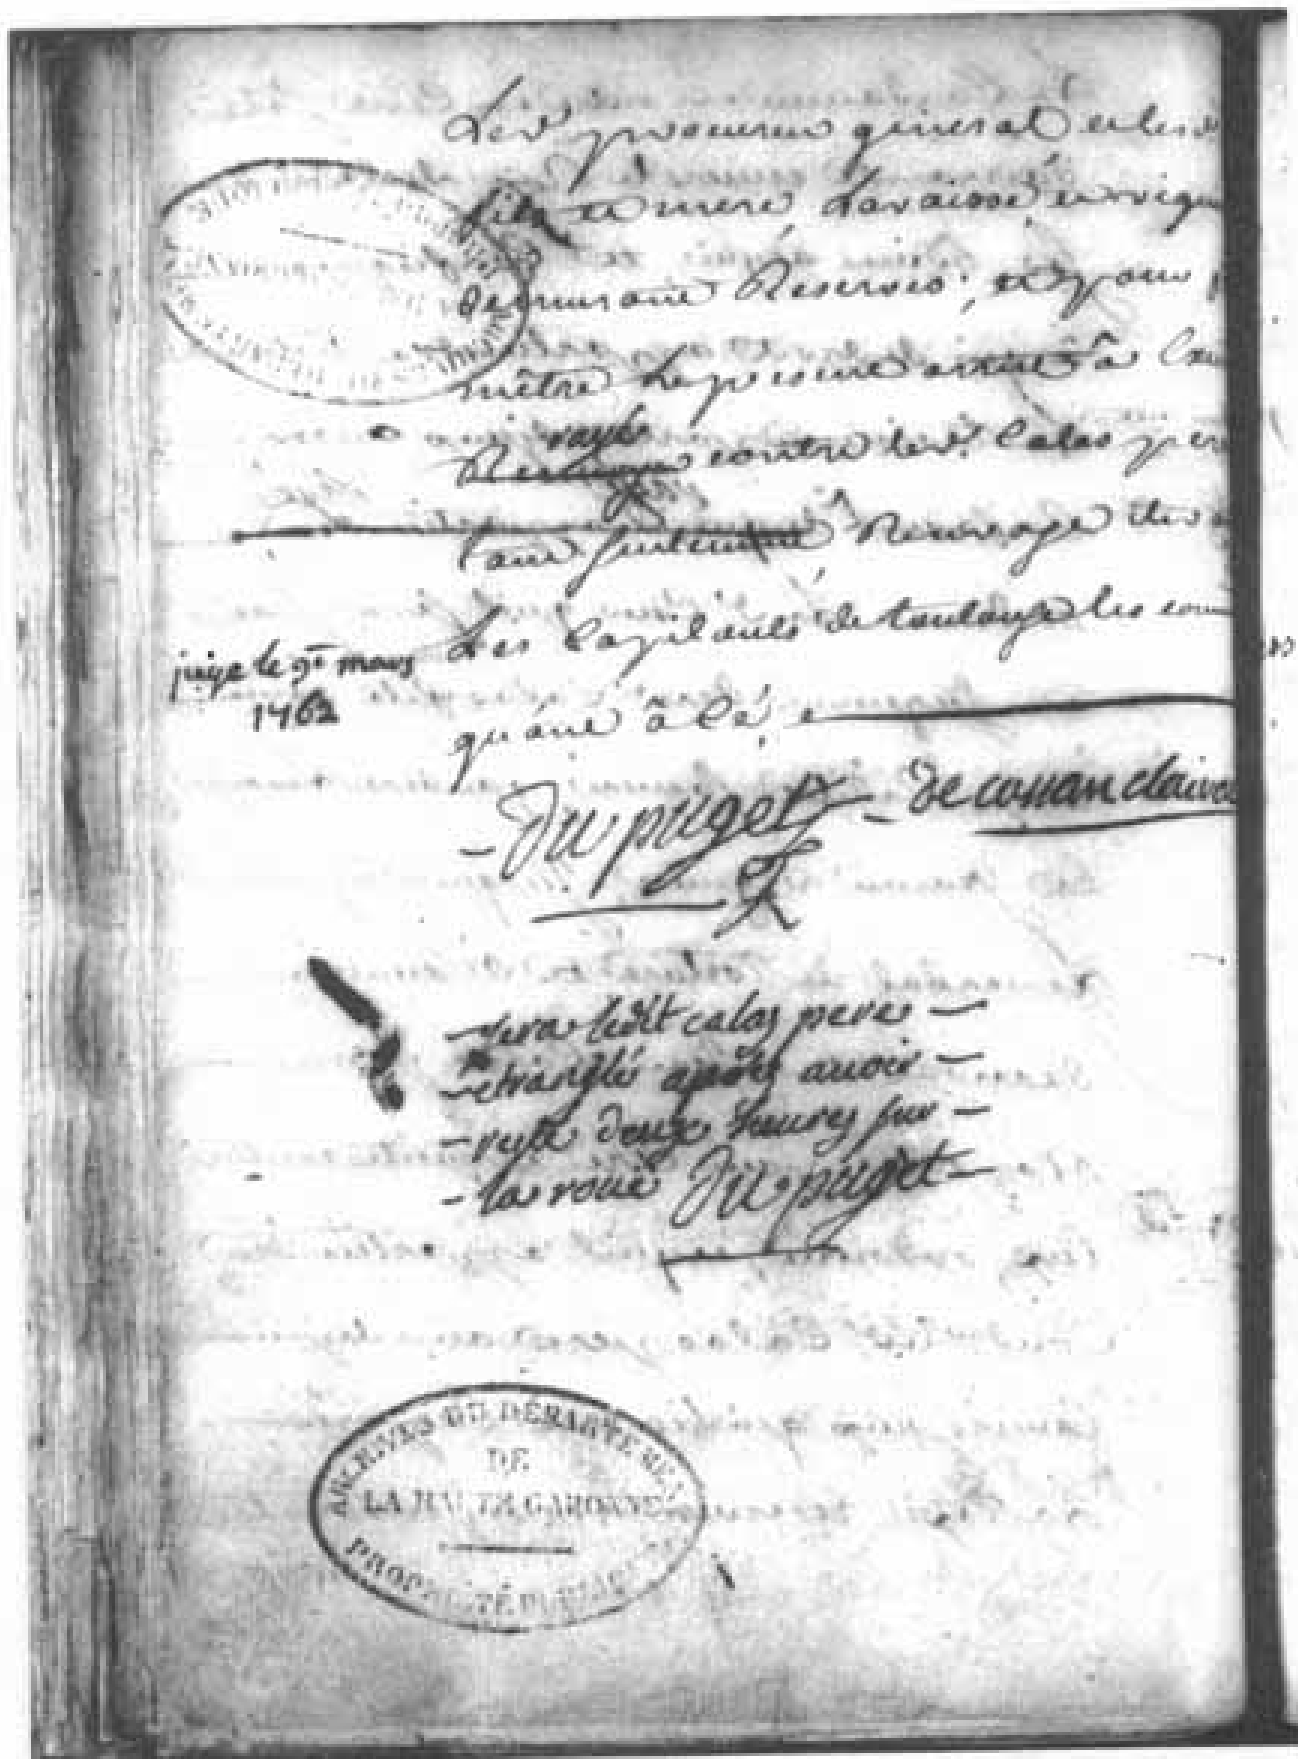 Led procureur general et lesd
fils et mere Lavaisse, et vigu
demurant Reservés; et pour
mètre le present arret à Exe
rayé
contre led. Calas per
tant seulement Renvoye
Les Capitouls de toulouse les
jugé le 9e mars
1762
quant à Ce,
Du puget
De cassan clairac
sera ledit calas pere
etranglé apres avoir
resté deux heures sur
la roue Du puget
ARCHIVES DU DÉPARTEMENT
DE
LA HAUTE GARONNE
PROPRIÉTÉ PUBLIQUE